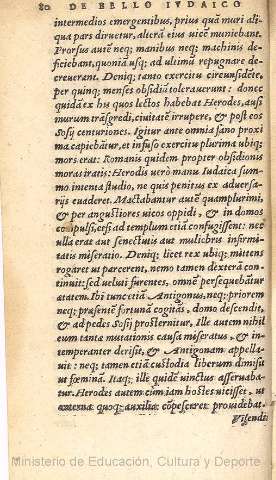 80 DE BELLO IVDAICO
intermedios emergentibus, prius quã muri ali-
qua pars dirueretur, alterã eius uice muniebant.
Prorsus autẽ neq; manibus neq; machinis de-
ficiebant, quoniã usq; ad ultimũ repugnare de-
creuerant. Deniq; tanto exercitu circunsidẽte,
per quinq; menses obsidiã tolerauerunt: donec
quidã ex his quos lectos habebat Herodes, ausi
murum trãsgredi, ciuitatẽ irrupere, & post eos
Sosij centuriones. Igitur ante omnia fano proxi
ma capiebãtur, et infuso exercitu plurima ubiq;
mors erat: Romanis quidem propter obsidionis
moras iratis: Herodis uerò manu Iudaica sum-
mo intenta studio, ne quis penitus ex aduersa-
rijs euaderet. Mactabantur autẽ quamplurimi,
& per angustiores uicos oppidi, & in domos
compulsi, etsi ad templum etiã confugissent: nec
ulla erat aut senectutis aut muliebris infirmi-
tatis miseratio. Deniq; licet rex ubiq; mittens
rogaret ut parcerent, nemo tamen dexterã con-
tinuit: sed ueluti furentes, omnẽ persequebãtur
ætatem. Ibi tunc etiã Antigonus, neq; priorem
neq; præsentẽ fortunã cogitãs, domo descendit,
& ad pedes Sosij prosternitur. Ille autem nihil
eum tanta mutationis causa miseratus, & in-
temperanter derisit, & Antigonam appella-
uit: neq; tamen etiã custodia liberum dimisit
ut fœminã. Itaq; ille quidẽ uinctus asseruaba-
tur. Herodes autem cùm iam hostes uicisset, ut
externa quoq; auxilia cõpesceret prouidebat.
Visendi
Ministerio de Educación, Cultura y Deporte